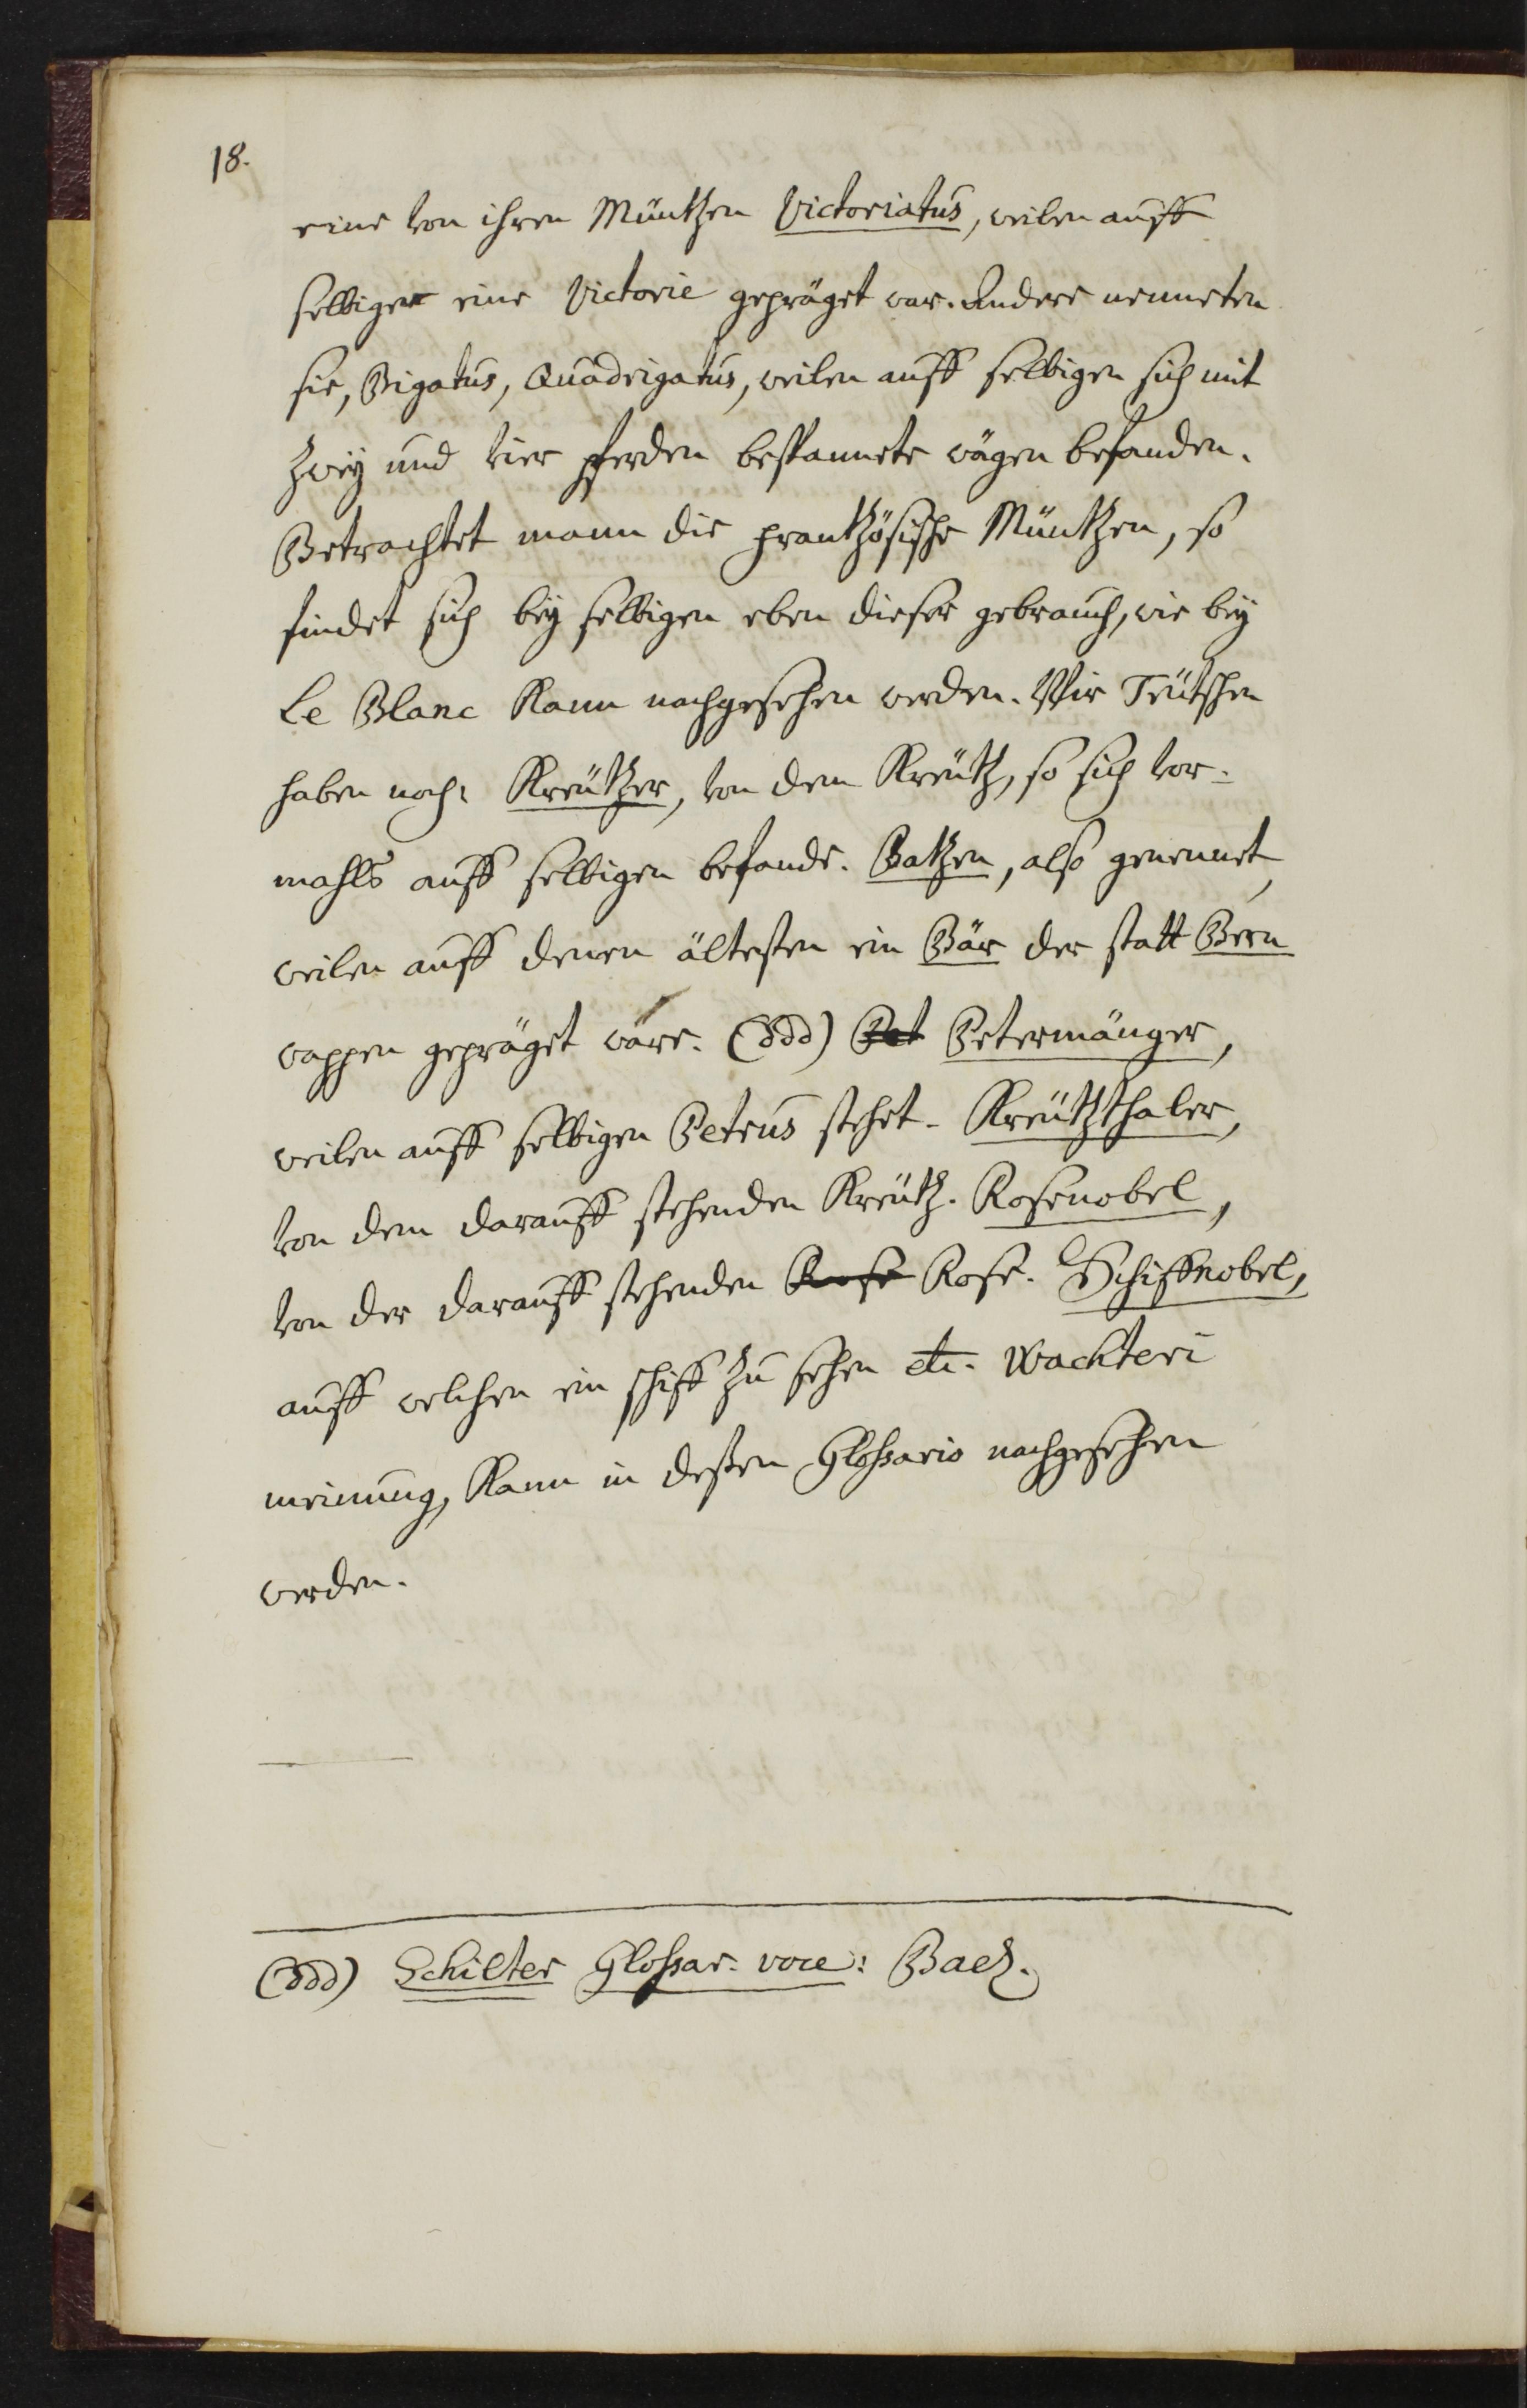 18.
eine von ihren Müntzen Victoriatus, weilen auff
selbiger eine Victorie gepräget war. Andere nenneten
sie, Bigatus, Quadrigatus, weilen auff selbigen sich mit
zweÿ und vier pferden bespannete wägen befanden.
Betrachtet mann die frantzösische Müntzen, so
findet sich beÿ selbigen eben dieser gebrauch, wie beÿ
Le Blanc kann nachgesehen werden. Wir Teütschen
haben noch: Kreützer, von dem Kreütz, so sich vor-
mahls auff selbigen befande. Batzen, also genennet,
weilen auff denen ältesten ein Bär der statt Bern
wappen gepräget ware. (ddd) Pet Petermänger,
weilen auff selbigen Petrus stehet. Kreützthaler,
von dem darauff stehenden Kreütz. Rosenobel,
von der darauff stehenden Rose Rose. Schiffnobel,
auff welchen ein schiff zu sehen etc. Wachteri
meinung, kann in deßen Glossario nachgesehen
werden.
(ddd) Schilter Glossar. voce: Baetz.